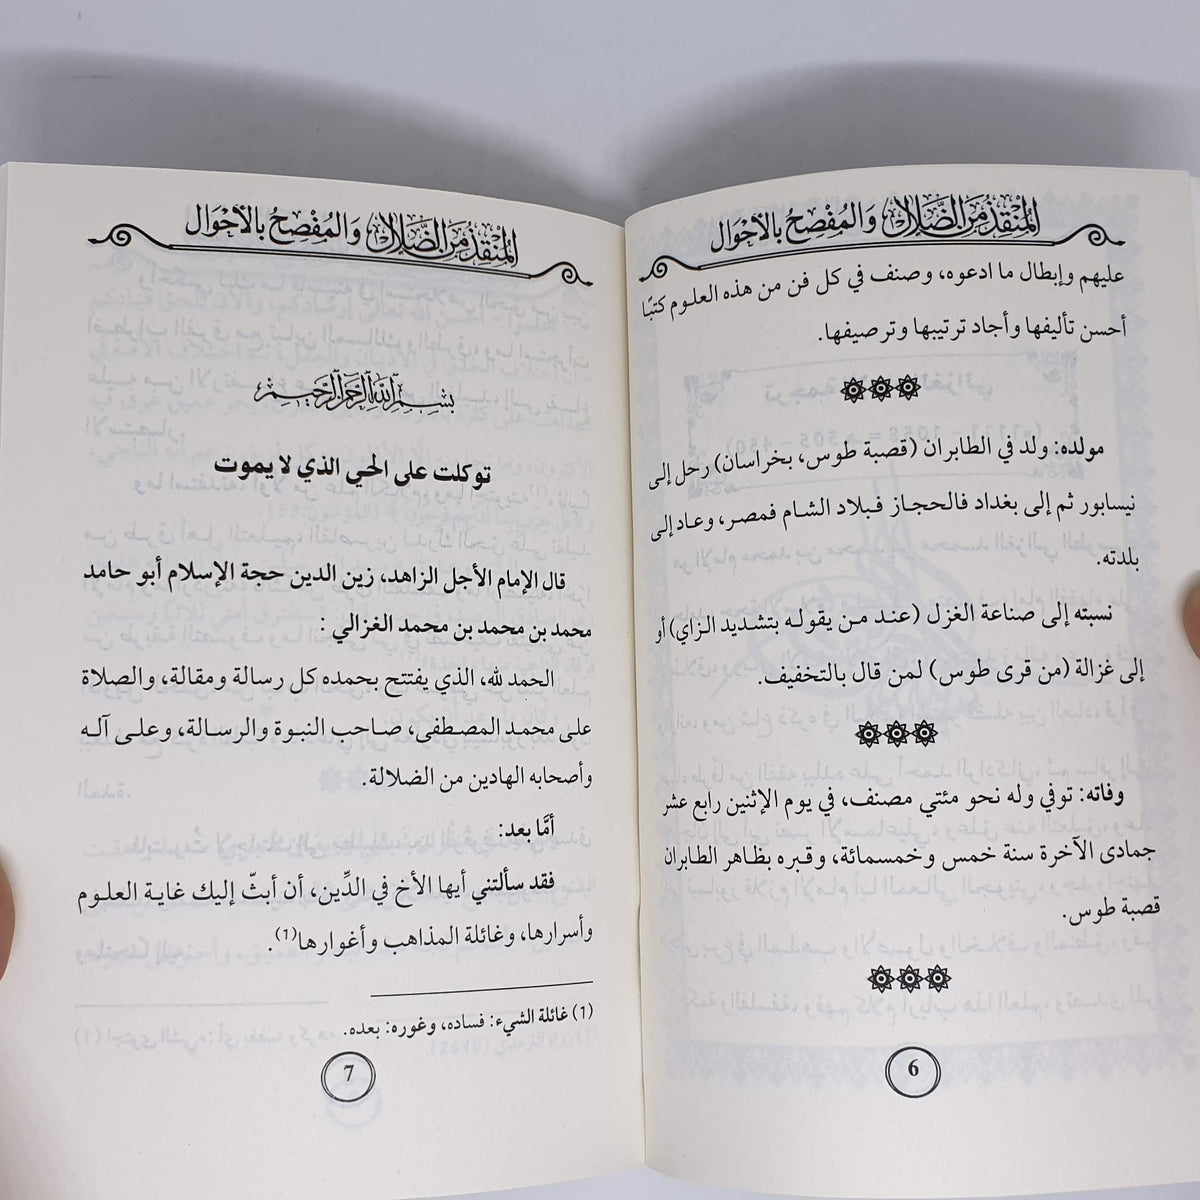 المنقذ من الضلال والمفصح بالأحوال
عليهم وإبطال ما ادعوه، وصنف في كل فن من هذه العلوم كتبًا
أحسن تأليفها وأجاد ترتيبها وترصيفها.
مولده: ولد في الطابران (قصبة طوس، بخراسان) رحل إلى
نيسابور ثم إلى بغداد فالحجاز فبلاد الشام فمصر، وعاد إلى
بلدته.
نسبته إلى صناعة الغزل (عند من يقوله بتشديد الزاي) أو
إلى غزالة (من قرى طوس) لمن قال بالتخفيف.
وفاته: توفي وله نحو مئتي مصنف، في يوم الإثنين رابع عشر
جمادى الآخرة سنة خمس وخمسمائة، وقبره بظاهر الطابران
قصبة طوس.
6
المُنْقِذُ مِنَ الضَّلَالِ وَالمُفْصِحُ بِالأَحْوَال
بسم الله الرحمن الرحيم
توكلت على الحي الذي لا يموت
قال الإمام الأجل الزاهد، زين الدين حجة الإسلام أبو حامد
محمد بن محمد بن محمد الغزالي :
الحمد لله، الذي يفتتح بحمده كل رسالة ومقالة، والصلاة
على محمد المصطفى، صاحب النبوة والرسالة، وعلى آله
وأصحابه الهادين من الضلالة.
أمَّا بعد:
فقد سألتني أيها الأخ في الدِّين، أن أبثّ إليك غاية العلوم
وأسرارها، وغائلة المذاهب وأغوارها(1).
(1) غائلة الشيء: فساده، وغوره: بعده.
7